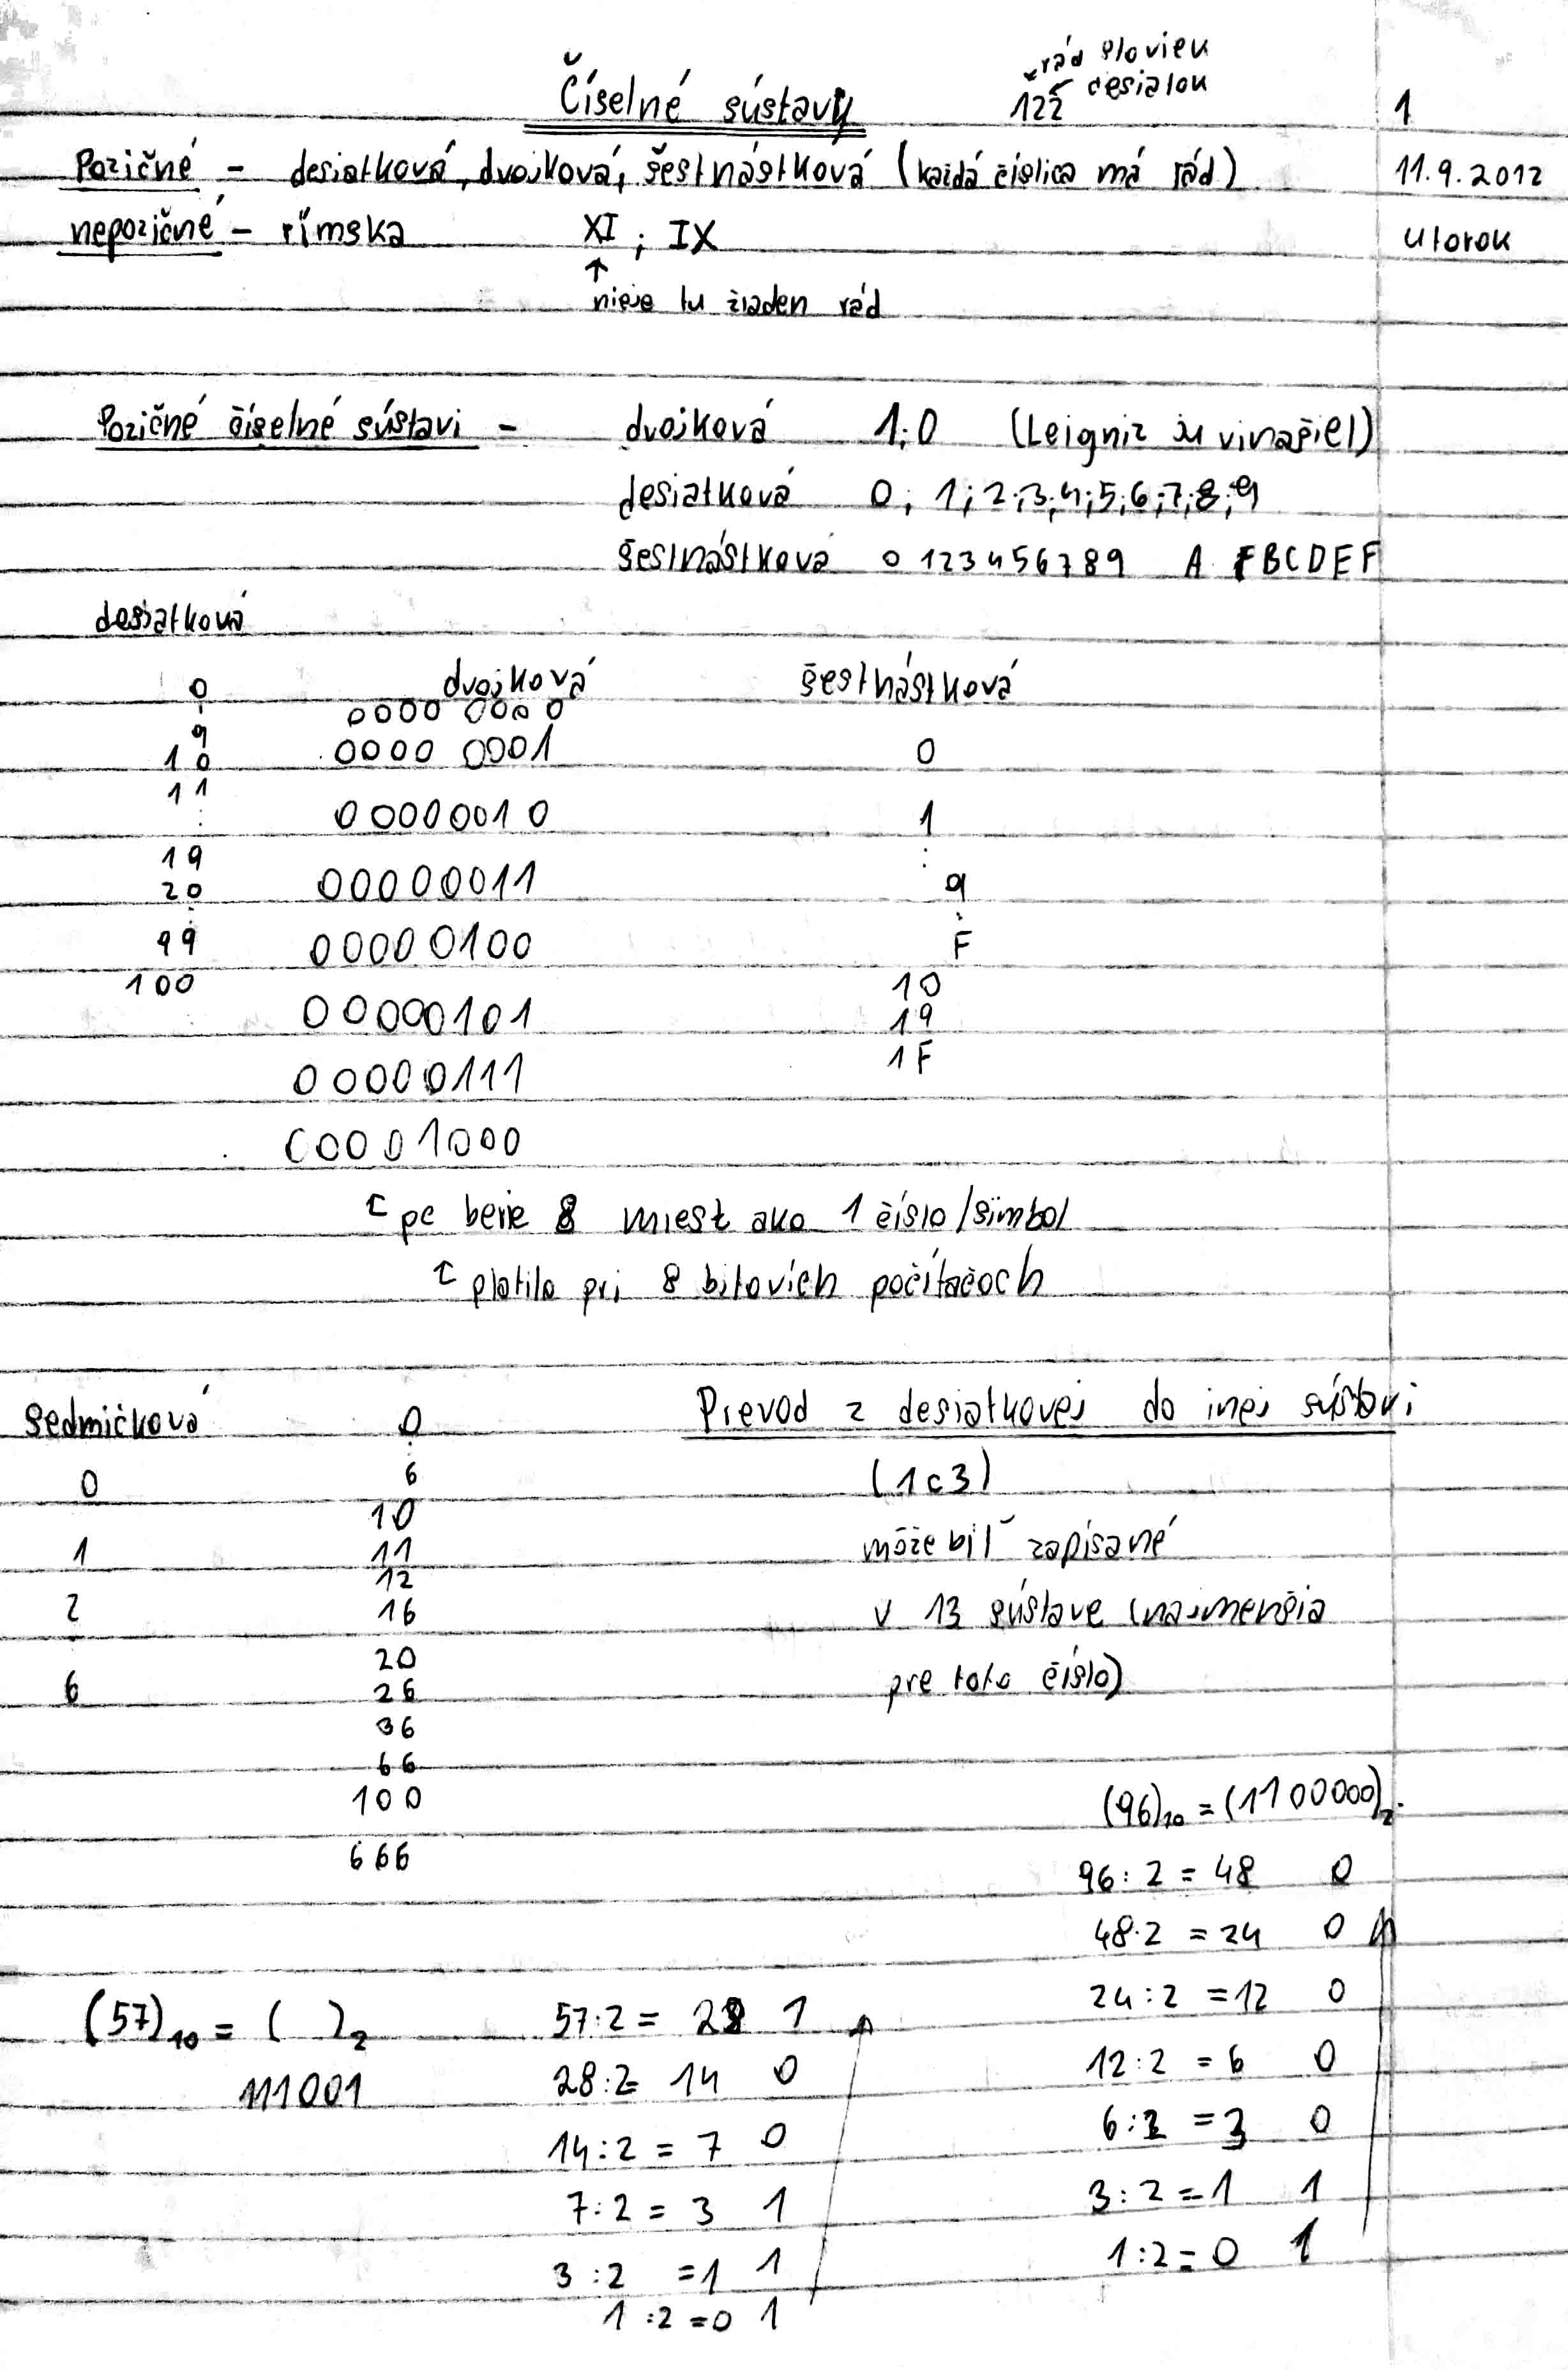 rád sloviek
Číselné sústavy 122 desialok 1
Pozičné - desiatková, dvojková, šestnástková (každá číslica má rád) 11.9.2012
nepozičné - rímska XI ; IX utorok
↑
nieje tu žiaden rád
Pozičné číselné sústavi - dvojková 1;0 (Leigniz ju vinašiel)
desiatková 0; 1;2;3;4;5;6;7;8;9
šestnástková 0 123456789 A BCDEF
desiatková
0 dvojková šestnástková
0000 0000
9
10 0000 0001 0
11
00000010 1
19
20 00000011 9
99 00000100 F
100 10
00000101 19
00000111 1F
00001000
pc berie 8 miest ako 1 číslo/símbol
platilo pri 8 bitových počítačoch
Sedmičková 0 Prevod z desiatkovej do inej sústavi
0 6 (1c3)
10
1 11 môže biť zapísané
12
2 16 v 13 sústave (najmenšia
20
6 26 pre toto číslo)
36
66
100 (96)10 = (1100000)2
666
96:2 = 48 0
48:2 = 24 0
24:2 = 12 0
(57)10 = ( )2 57:2 = 28 1
111001 28:2= 14 0 12:2 = 6 0
14:2 = 7 0 6:2 = 3 0
7:2 = 3 1 3:2 = 1 1
3:2 = 1 1 1:2 = 0 1
1:2 = 0 1